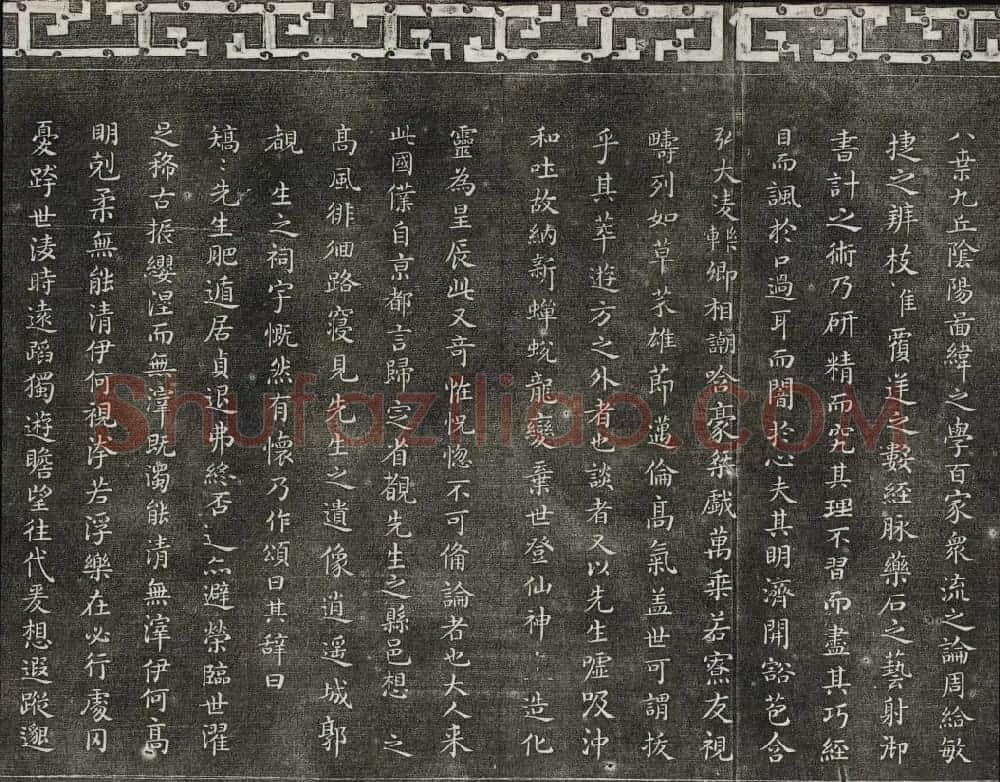 八索九丘陰陽啚緯之學百家衆流之論周給敏
捷之辨枝覆逆之數經脉藥石之藝射御
書計之術乃研精而究其理不習而盡其巧經
目而諷於口過耳而闇於心夫其明濟開豁苞含
弘大凌轢卿相謿哈豪桀戲萬乘若寮友視
疇列如草芥雄節邁倫髙氣盖世可謂拔
乎其萃遊方之外者也談者又以先生噓吸沖
和吐故納新蟬蛻龍變棄世登仙神造化
靈為星辰此又奇恠怳惚不可俻論者也大人来
此國僕自京都言歸定省覩先生之縣邑想之
髙風徘徊路寢見先生之遺像逍遥城郭
覩生之祠宇慨然有懷乃作頌曰其辭曰
矯〻先生肥遁居貞退弗終否亦避榮臨世濯
足稀古振纓涅而無滓既濁能清無滓伊何髙
明剋柔無能清伊何視洿若浮樂在必行處囚
憂跨世凌時遠蹈獨遊瞻望往代爰想遐蹤邈
Shufaziliao.COM